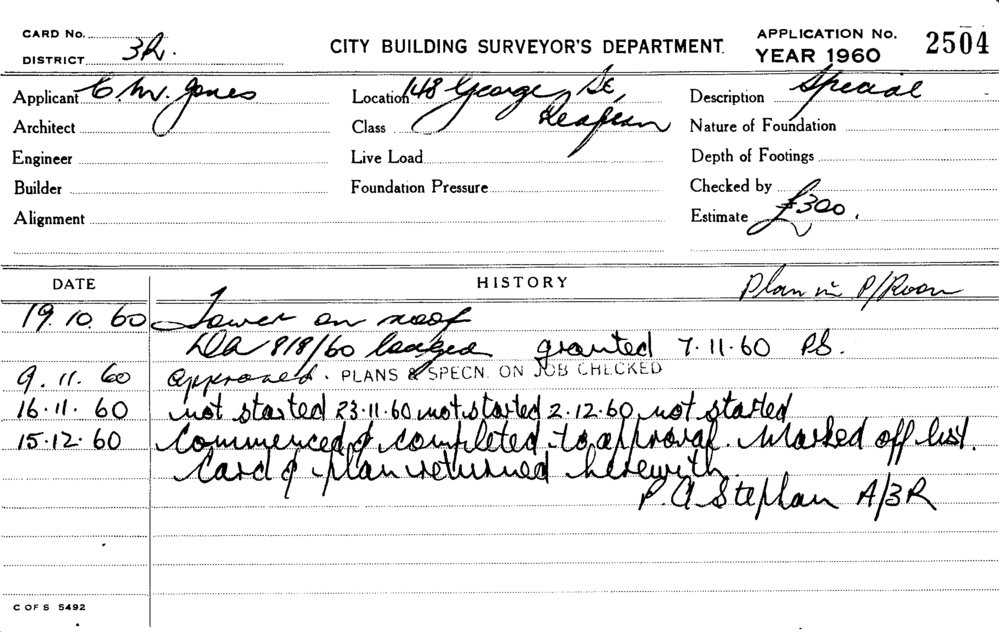 CARD No.
DISTRICT 3R.
CITY BUILDING SURVEYOR'S DEPARTMENT.
APPLICATION No. 2504
YEAR 1960
Applicant C. W. Jones
Location 148 George St,
Description Special
Architect
Class
Nature of Foundation
Engineer
Live Load
Depth of Footings
Builder
Foundation Pressure
Checked by
Alignment
Estimate £300.
DATE
HISTORY
Plan in P/Room
19.10.60 Tower on roof
DA 818/60 lodged granted 7.11.60 PS.
9.11.60 approved. PLANS & SPECN. ON JOB CHECKED
16.11.60 not started 23.11.60 not started 2.12.60 not started
15.12.60 Commenced & completed to approval. Marked off list.
Card & plan returned herewith.
P. A Stephan A/3R
C OF S 5492